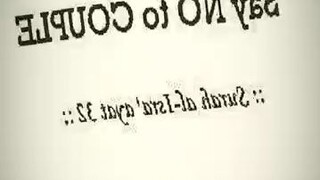 Say NO to COUPLE
:: Surah al-Isra' ayat 32 ::